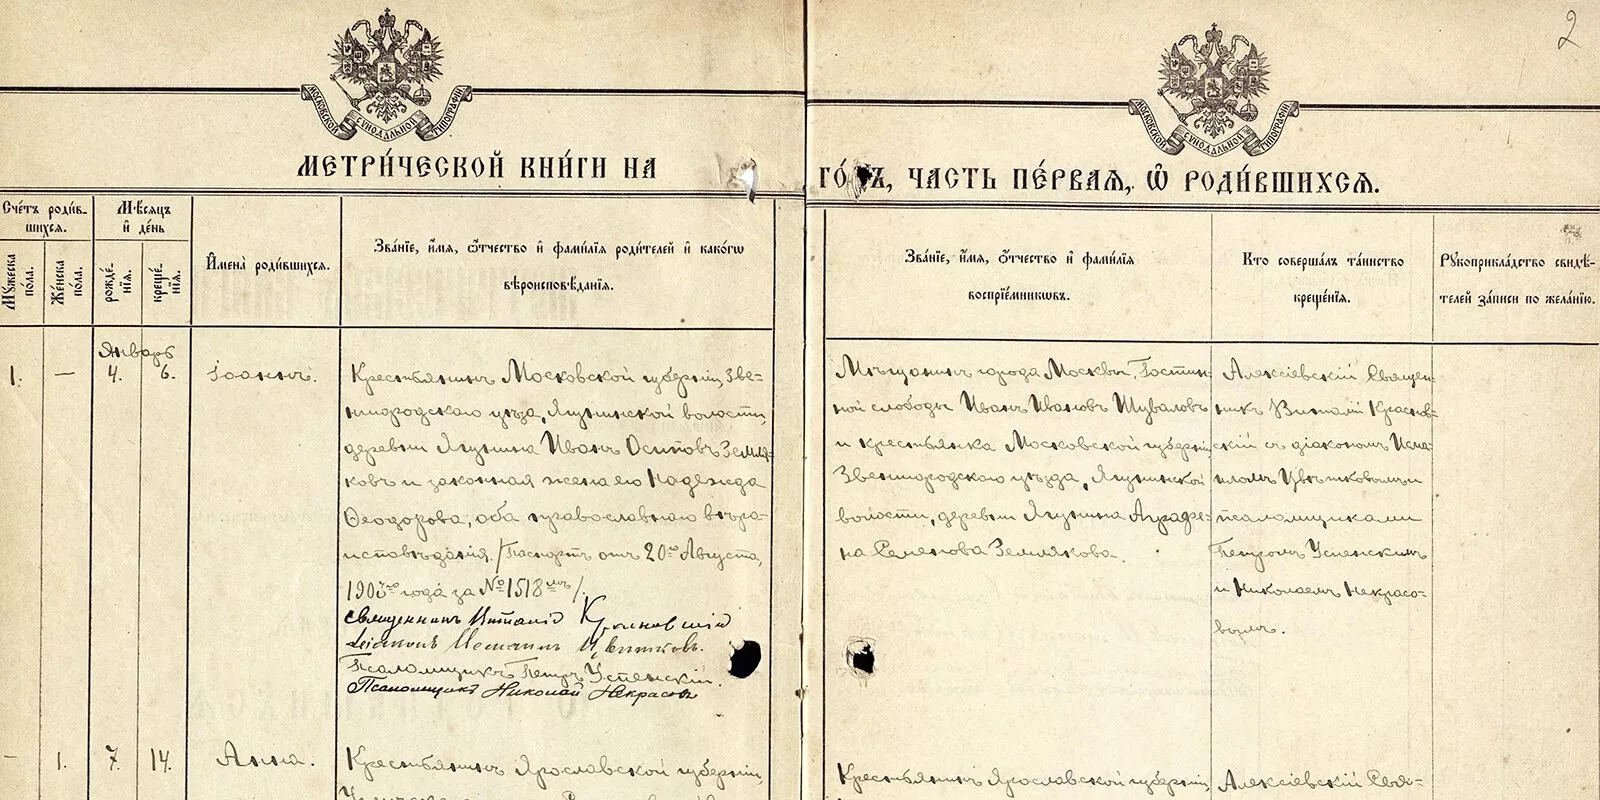 2
МОСКОВСКОЙ СѴНОДАЛЬНОЙ ТИПОГРАФІИ
МОСКОВСКОЙ СѴНОДАЛЬНОЙ ТИПОГРАФІИ
МЕТРИ́ЧЕСКОЙ КНИ́ГИ НА
ГО́ Ъ, ЧАСТЬ ПЕ́РВАЯ, Ѽ РОДИ́ВШИХСЯ.
Сче́тъ роди́в-
шихся.
Мѣсяцъ
и҆ де́нь
Мꙋ́жеска по́ла.
Же́нска по́ла.
рожде́-
нїя.
креще́-
нїя.
И҆мена̀ роди́вшихся.
Зва́нїе, и҆́мя, ѻ҆́тчество и҆ фами́лїя роди́телей и҆ како́гѡ
вѣроисповѣ́данїя.
Зва́нїе, и҆́мя, ѻ҆́тчество и҆ фами́лїя
воспрїе́мникѡвъ.
Кто соверша́лъ та́инство
креще́нїя.
Рꙋкоприкла́дство свидѣ́-
телей за́писи по жела́нїю.
Январь
1. — 4. 6. Іоаннъ.
Крестьянинъ Московской губерніи, Зве-
нигородскаго уѣзда, Ягунинской волости,
деревни Ягунина Иванъ Осиповъ Земля-
ковъ и законная жена его Надежда
Ѳеодорова, оба православнаго вѣро-
исповѣданія. /Паспортъ отъ 20го Августа,
1903го года за № 1518мъ/.
Священникъ Виталій Красновскій
Діаконъ Исмаилъ Цвѣтковъ.
Псаломщикъ Петръ Успенскій.
Псаломщикъ Николай Некрасовъ
Мѣщанинъ города Москвы, Гостин-
ной слободы Иванъ Ивановъ Шуваловъ
и крестьянка Московской губерніи
Звенигородскаго уѣзда, Ягунинской
волости, деревни Ягунина Аграфе-
на Семенова Землякова.
Алексіевскій Священ-
никъ Виталій Краснов-
скій съ діакономъ Исма-
иломъ Цвѣтковымъ и
псаломщиками
Петромъ Успенскимъ
и Николаемъ Некрасо-
вымъ.
— 1. 7. 14. Анна.
Крестьянинъ Ярославской губерніи,
Крестьянинъ Ярославской губерніи,
Алексіевскій